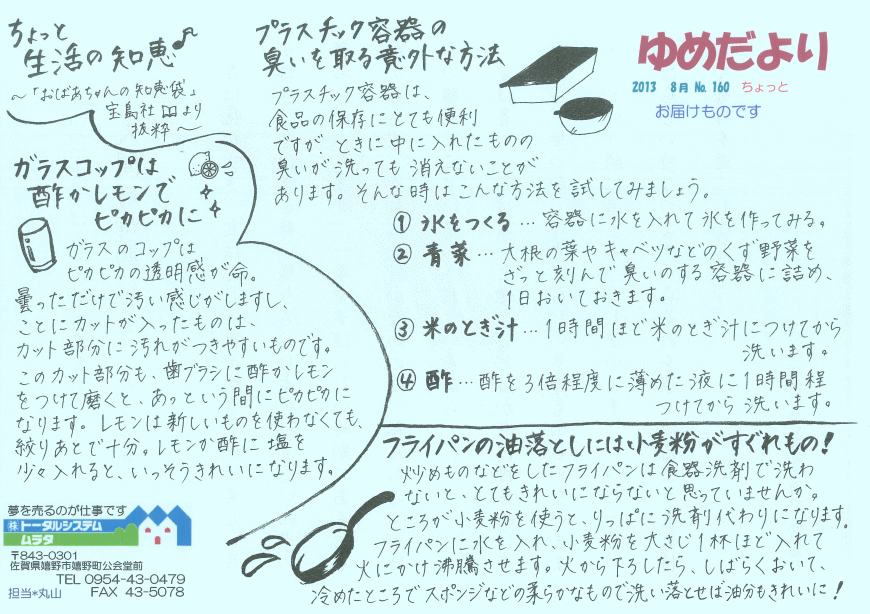 ちょっと
生活の知恵
～「おばあちゃんの知恵袋」
宝島社 より
抜粋～
ガラスコップは
酢かレモンで
ピカピカに
ガラスのコップは
ピカピカの透明感が命。
曇っただけで汚い感じがしますし、
ことにカットが入ったものは、
カット部分に汚れがつきやすいものです。
このカット部分も、歯ブラシに酢かレモン
をつけて磨くと、あっという間にピカピカに
なります。レモンは新しいものを使わなくても、
絞りあとで十分。レモンか酢に塩を
少々入れると、いっそうきれいになります。
プラスチック容器の
臭いを取る意外な方法
プラスチック容器は、
食品の保存にとても便利
ですが、ときに中に入れたものの
臭いが洗っても消えないことが
あります。そんな時はこんな方法を試してみましょう。
① 氷をつくる…容器に水を入れて氷を作ってみる。
② 青菜…大根の葉やキャベツなどのくず野菜を
ざっと刻んで臭いのする容器に詰め、
1日おいておきます。
③ 米のとぎ汁…1時間ほど米のとぎ汁につけてから
洗います。
④ 酢…酢を3倍程度に薄めた液に1時間程
つけてから洗います。
ゆめだより
2013 8月 No.160 ちょっと
お届けものです
フライパンの油落としには小麦粉がすぐれもの!
炒めものなどをしたフライパンは食器洗剤で洗わ
ないと、とてもきれいにならないと思っていませんか。
ところが小麦粉を使うと、りっぱに洗剤代わりになります。
フライパンに水を入れ、小麦粉を大さじ1杯ほど入れて
火にかけ沸騰させます。火から下ろしたら、しばらくおいて、
冷めたところでスポンジなどの柔らかなもので洗い落とせば油分もきれいに!
夢を売るのが仕事です
㈱トータルシステム
ムラタ
〒843-0301
佐賀県嬉野市嬉野町公会堂前
TEL 0954-43-0479
担当*丸山 FAX 43-5078